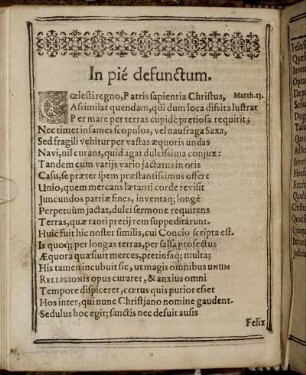 In pié defunctum.
Cœlesti regno, Patris sapientia Christus, Matth.13.
Assimilat quendam, qui dum loca dissita lustrat
Per mare per terras cupidè pretiosa requirit;
Nec timet infames scopulos, vel naufraga Saxa,
Sed fragili vehitur per vastas æquoris undas
Navi, nil curans, quid agat dulcissima conjux:
Tandem cum varijs vario jactatus in oris
Casu, se præter spem præstantissimus offert
Unio, quem mercans lætanti corde revisit
Jucundos patriæ fines, inventaq; longè
Perpetuùm jactat, dulci sermone requirens
Terras, quæ tanti pretij rem suppeditârunt.
Huic fuit hic noster similis, cui Concio scripta est.
Is quoq; per longas terras, per salsa profectus
Æquora quæsivit merces, pretiosaq; multa;
His tamen incubuit sic, ut magis omnibus UNUM
RELIGIONIS opus curaret, & anxius omni
Tempore dispiceret, cœtus quis purior esset
Hos inter, qui nunc Christjano nomine gaudent.
Sedulus hoc egit; sanctis nec desuit ausis
Felix